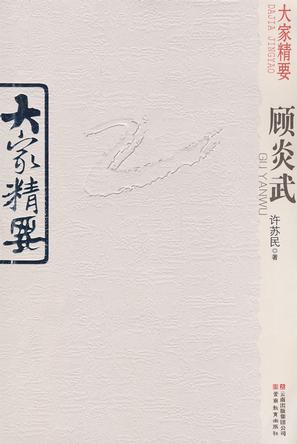 大家精要
DAJIA JINGYAO
顾炎武
GU YANWU
许苏民◎著
大家精要
云南出版集团公司
云南教育出版社